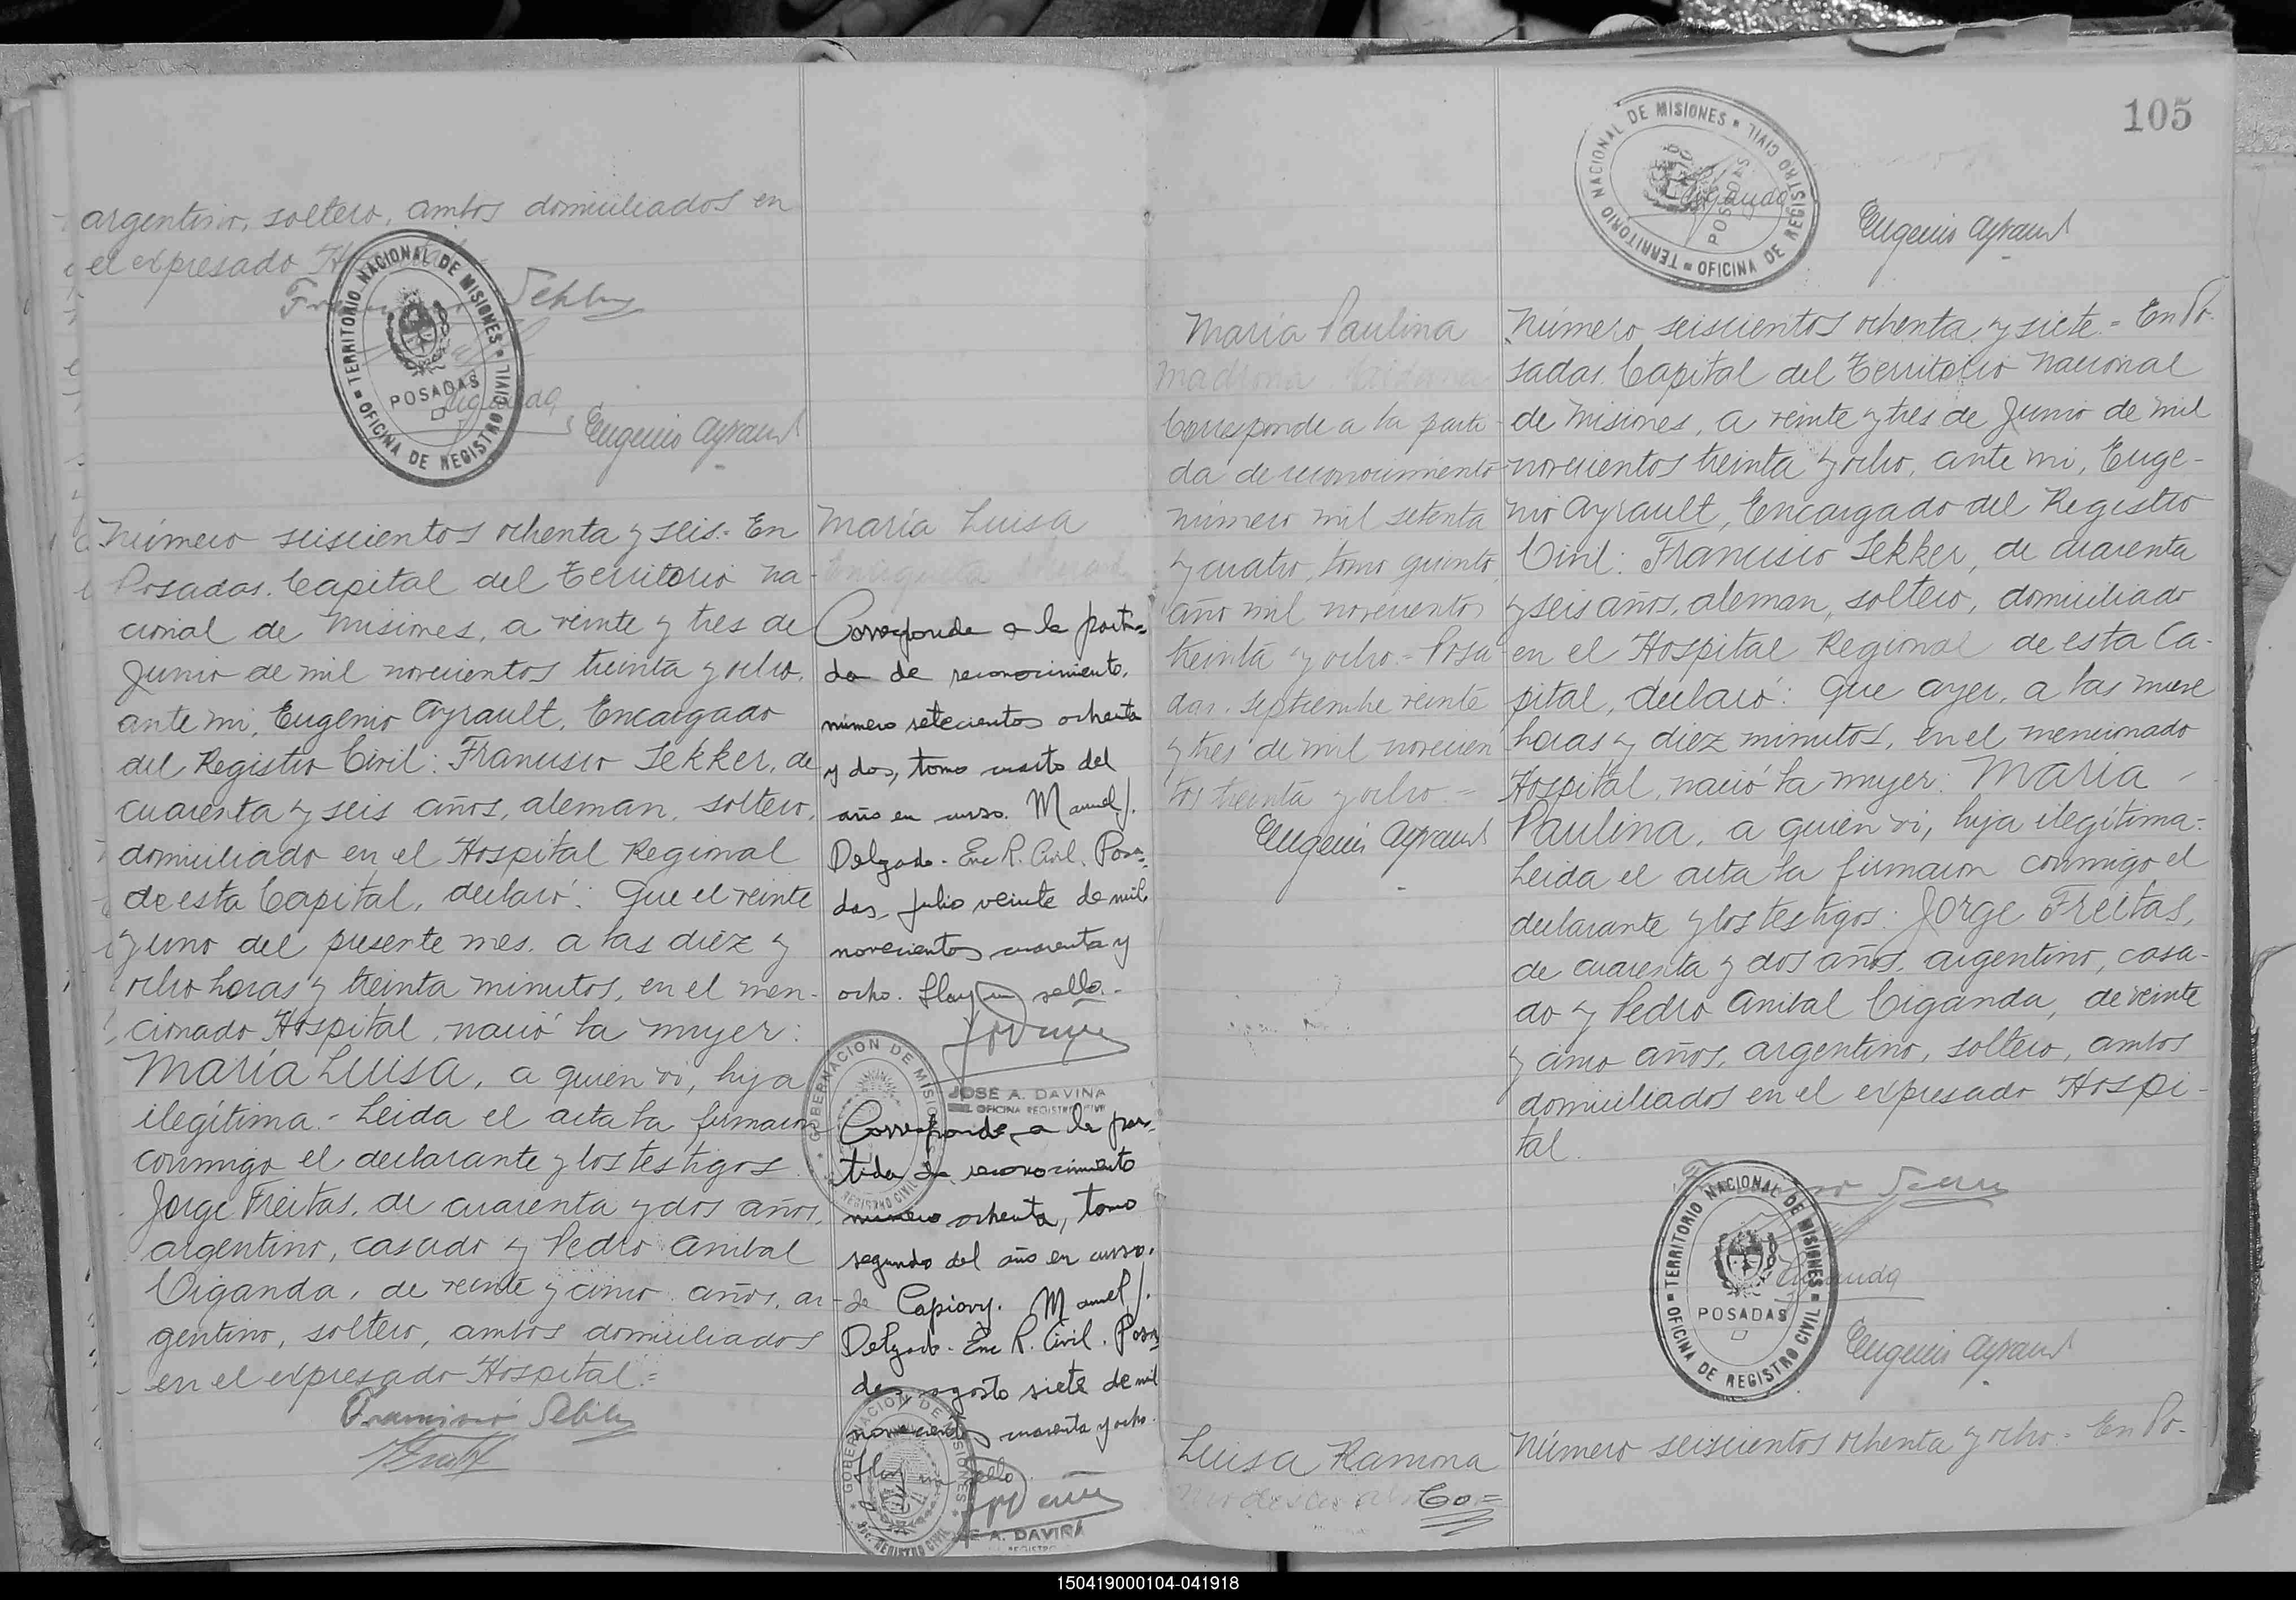 argentino, soltero, ambos domiciliados en
el expresado
TERRITORIO NACIONAL DE MISIONES
OFICINA DE REGISTRO CIVIL
POSADAS
Eugenio Ayrault
Número seiscientos ochenta y seis.- En
Posadas. Capital del Territorio Na-
cional de Misiones, a veinte y tres de
Junio de mil novecientos treinta y ocho,
ante mi, Eugenio Ayrault, Encargado
del Registro Civil: Francisco Sekker, de
cuarenta y seis años, aleman, soltero,
domiciliado en el Hospital Regional
de esta Capital, declaró: Que el veinte
y uno del presente mes, a las diez y
ocho horas y treinta minutos, en el men-
cionado Hospital, nació la mujer:
María Luisa, a quien vi, hija
ilegítima.- Leida el acta la firmaron
conmigo el declarante y los testigos
Jorge Freitas, de cuarenta y dos años,
argentino, casado y Pedro Anibal
Ciganda, de veinte y cinco años, ar-
gentino, soltero, ambos domiciliados
en el expresado Hospital.=
María Luisa
Corresponde a la parti-
da de reconocimiento,
número setecientos ochenta
y dos, tomo cuarto del
año en curso. Manuel J.
Delgado. Enc R. Civil. Posa-
das, julio veinte de mil
novecientos cuarenta y
ocho. Hay un sello.-
GOBERNACION DE MISIONES
REGISTRO CIVIL
JOSE A. DAVIÑA
OFICINA REGISTRO CIVIL
Corresponde a la par-
tida de reconocimiento
número ochenta, tomo
segundo del año en curso.
de Capiovy. Manuel J.
Delgado. Enc R. Civil. Posa
das agosto siete de mil
novecientos cuarenta y ocho.
Hay un sello
GOBERNACION DE MISIONES
REGISTRO CIVIL
JOSE A. DAVIÑA
105
TERRITORIO NACIONAL DE MISIONES
OFICINA DE REGISTRO CIVIL
POSADAS
Ciganda
Eugenio Ayrault
María Paulina
Corresponde a la parti-
da de reconocimiento
número mil setenta
y cuatro, tomo quinto,
año mil novecientos
treinta y ocho.- Posa
das, septiembre veinte
y tres de mil novecien
tos treinta y ocho.-
Eugenio Ayrault
Número seiscientos ochenta y siete.- En Po-
sadas. Capital del Territorio Nacional
de Misiones, a veinte y tres de Junio de mil
novecientos treinta y ocho, ante mi, Euge-
nio Ayrault, Encargado del Registro
Civil: Francisco Sekker, de cuarenta
y seis años, aleman, soltero, domiciliado
en el Hospital Regional de esta Ca-
pital, declaró: Que ayer, a las nueve
horas y diez minutos, en el mencionado
Hospital, nació la mujer: María
Paulina, a quien vi, hija ilegítima.-
Leida el acta la firmaron conmigo el
declarante y los testigos: Jorge Freitas,
de cuarenta y dos años, argentino, casa-
do y Pedro Anibal Ciganda, de veinte
y cinco años, argentino, soltero, ambos
domiciliados en el expresado Hospi-
tal.
TERRITORIO NACIONAL DE MISIONES
OFICINA DE REGISTRO CIVIL
POSADAS
Ciganda
Eugenio Ayrault
Luisa Ramona
Co=
Número seiscientos ochenta y ocho.- En Po-
150419000104-041918